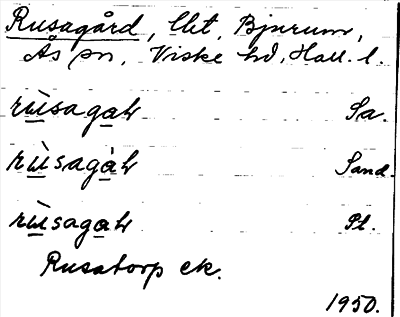 Rusagård, lht, Bjurum,
Ås sn, Viske hd, Hall. l.
rùsagaʀ Sa.
rùsagàʀ Sand.
rùsagaʀ Pl.
Rusatorp ek.
1950.